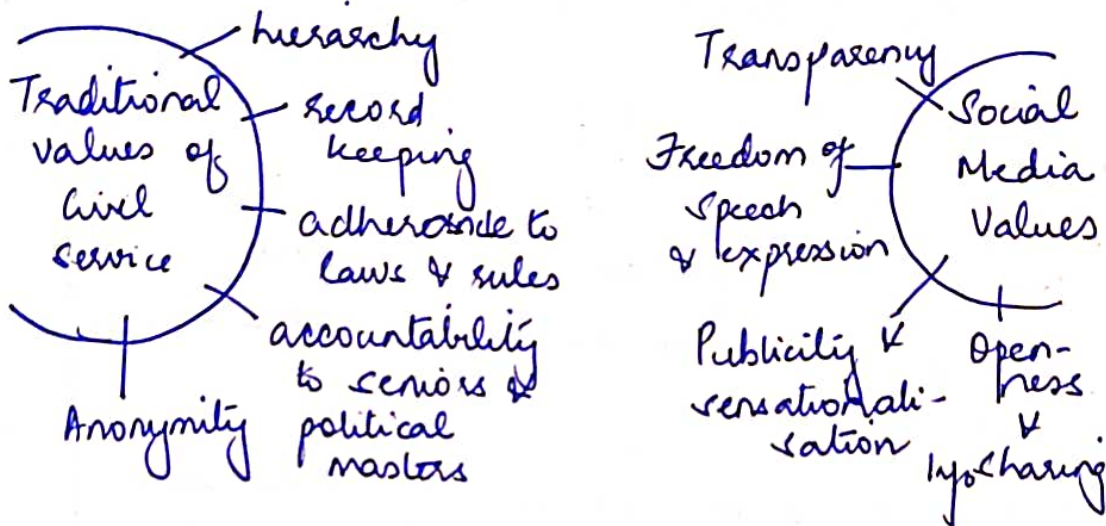 Traditional
values of
Civil
service
hierarchy
record
keeping
adherance to
laws & rules
accountability
to seniors &
political
masters
Anonymity
Social
Media
Values
Transparency
Freedom of
speech
& expression
Publicity &
sensationali-
sation
Open-
ness
&
Info sharing